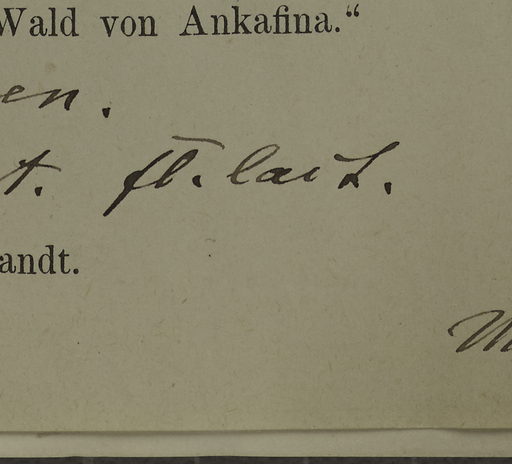 Wald von Ankafina.“
en.
t. fl. lact.
andt.